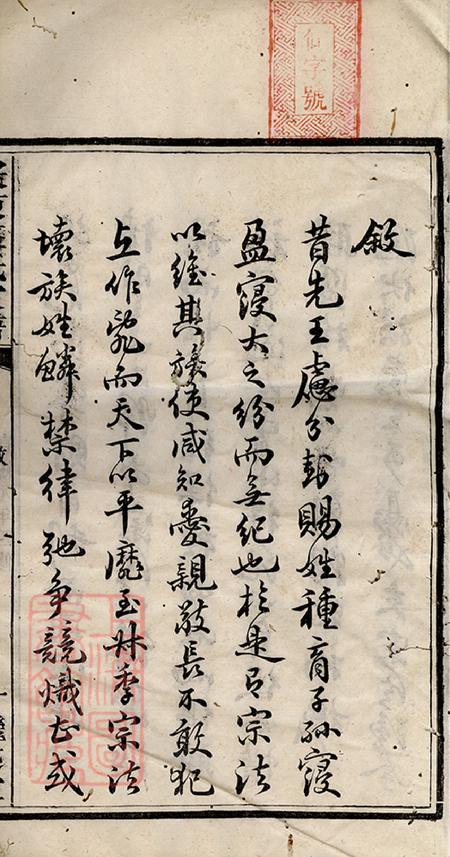 字號
敘
昔先王慮分封賜姓種育子孫寖
盈寖大之紛而無紀也於是有宗法
以維其族使咸知愛親敬長不敢犯
上作亂而天下以平靡至叔季宗法
壞族姓觧禁律弛爭競熾甚或